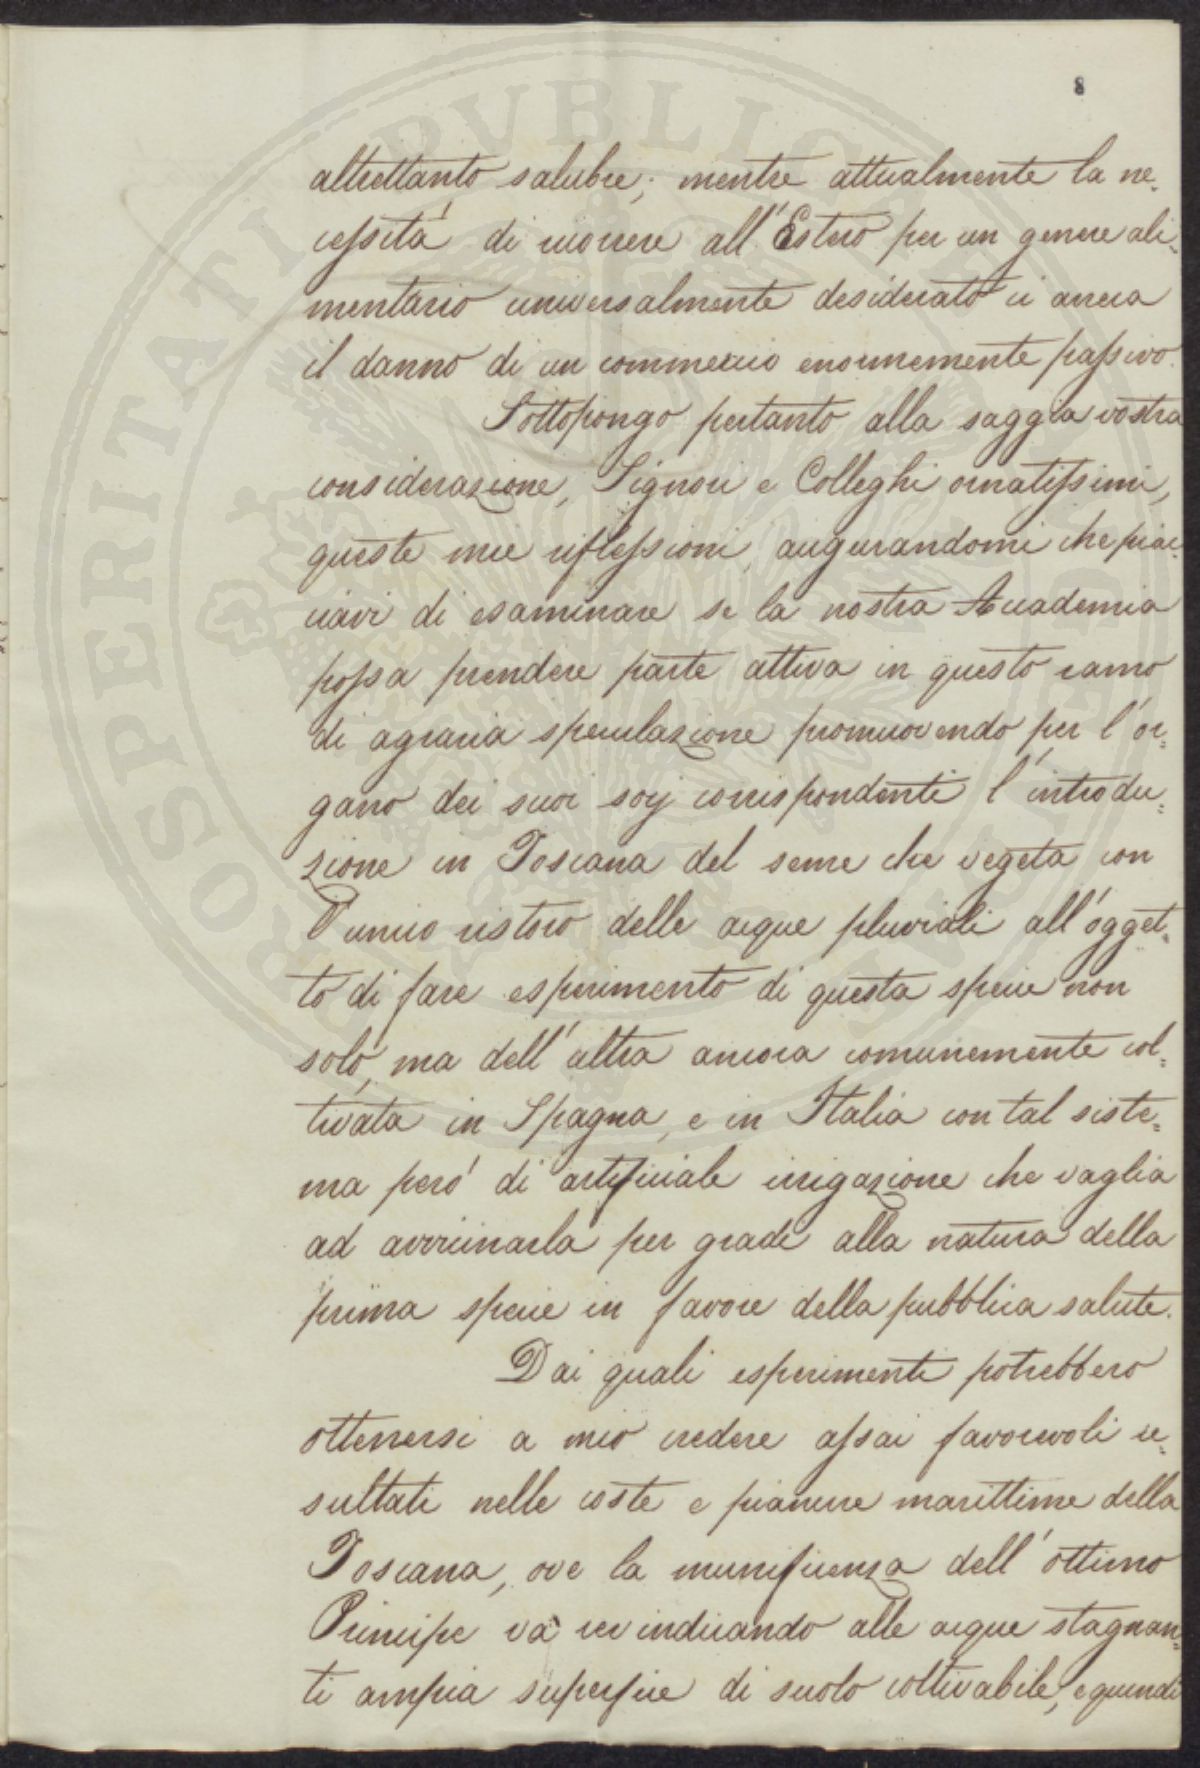 8
altrettanto salubre; mentre attualmente la ne=
cessità di ricorrere all'Estero per un genere ali=
mentario universalmente desiderato ci arreca
il danno di un commercio enormemente passivo.
Sottopongo pertanto alla saggia vostra
considerazione, Signori e Colleghi ornatissimi,
queste mie riflessioni, augurandomi che piac=
ciavi di esaminare se la nostra Accademia
possa prendere parte attiva in questo ramo
di agraria speculazione promuovendo per l'or=
gano dei suoi socj corrispondenti l'introdu=
zione in Toscana del seme che vegeta con
l'unico ristoro delle acque pluviali all'ogget=
to di fare esperimento di questa specie non
solo, ma dell'altra ancora comunemente col=
tivata in Spagna, e in Italia con tal siste=
ma però di artificiale irrigazione che vaglia
ad avvicinarla per gradi alla natura della
prima specie in favore della pubblica salute.
Dai quali esperimenti potrebbero
ottenersi a mio credere assai favorevoli re=
sultati nelle coste e pianure marittime della
Toscana, ove la munificenza dell'ottimo
Principe va rivindicando alle acque stagnan=
ti ampia superficie di suolo coltivabile, e quindi
PROSPERITATI PUBLICAE